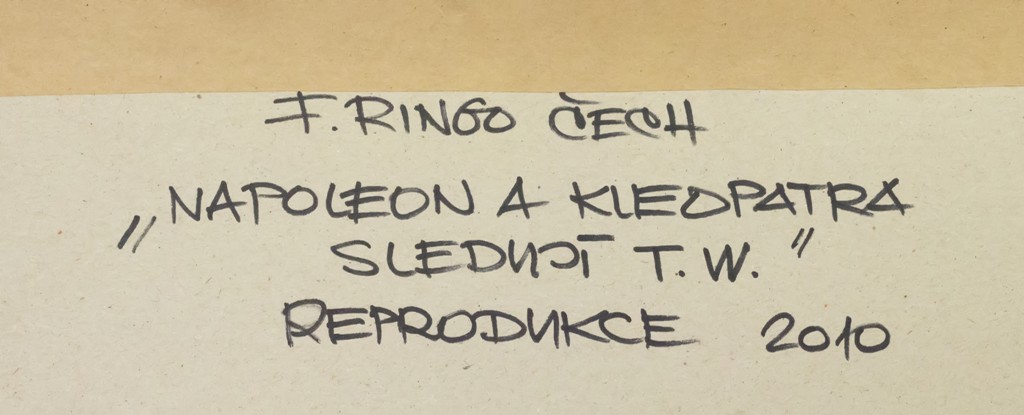 F. RINGO ČECH
„NAPOLEON A KLEOPATRA
SLEDUJÍ T. W."
REPRODUKCE 2010